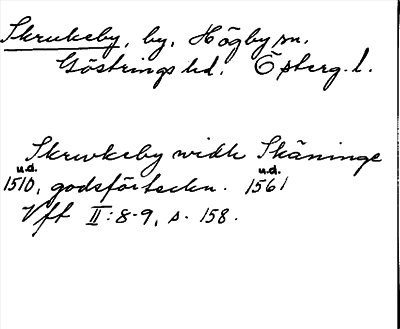 Skrukeby, by, Högby sn.
Göstrings hd. Österg. l.
Skrwkeby widh Skäninge
u.d. u.d.
1510, godsförteckn. 1561
Vft II:8-9, s. 158.